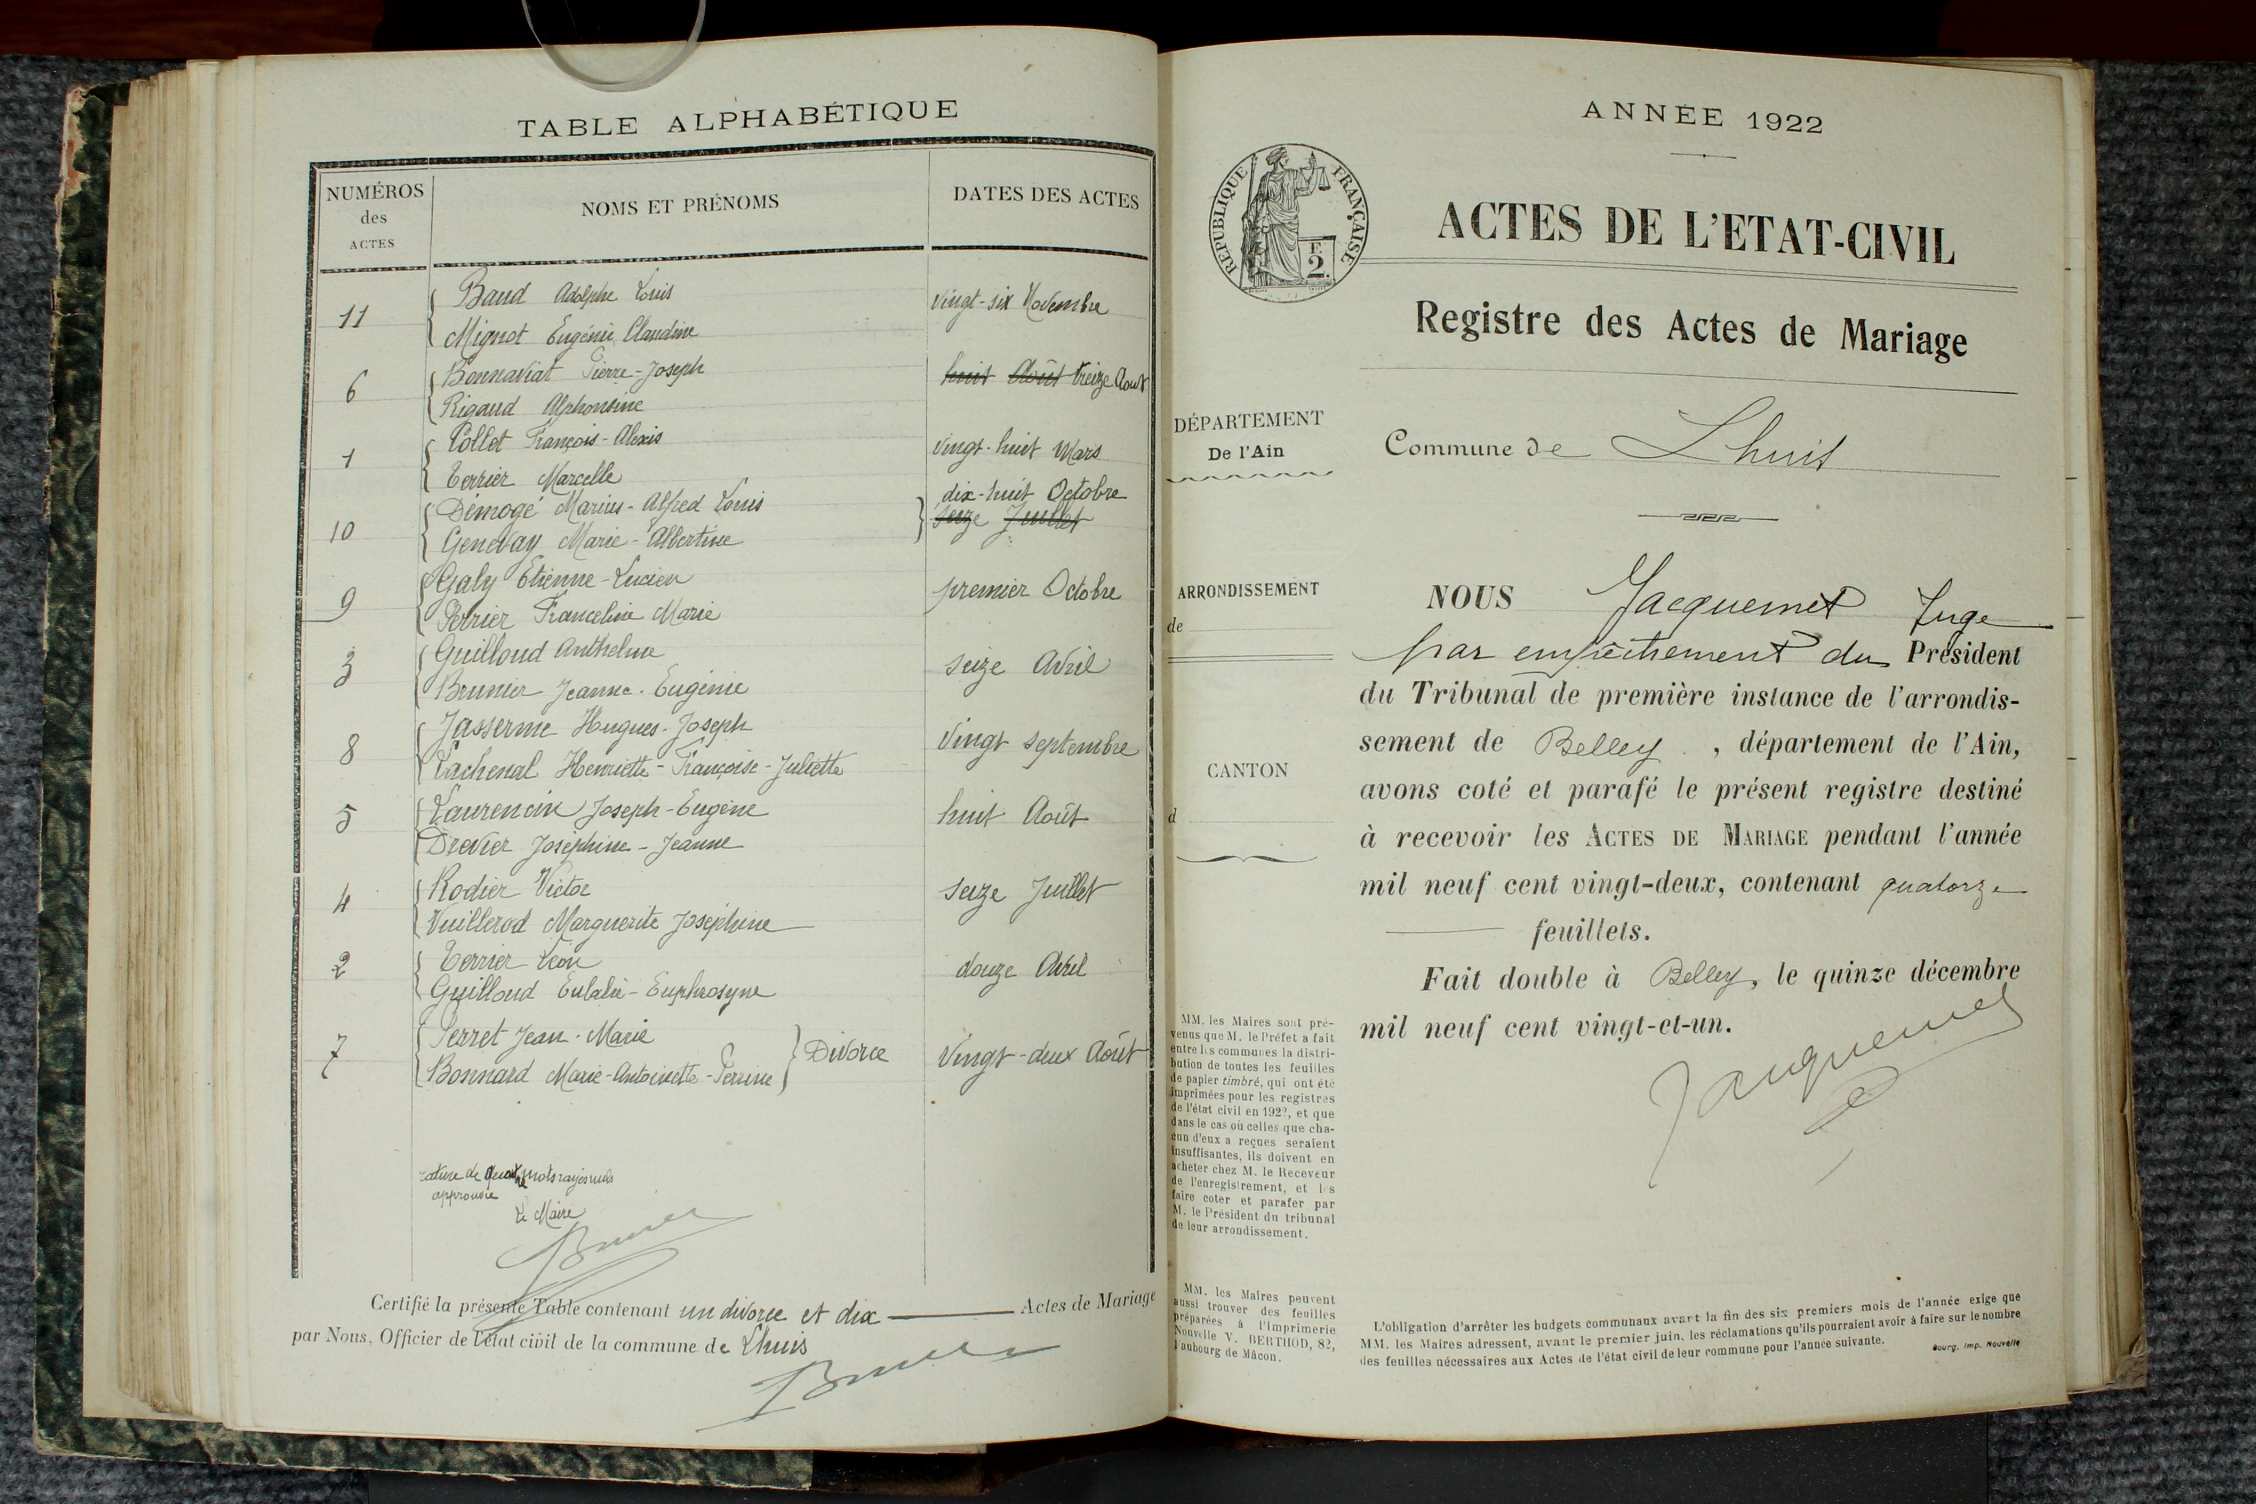 TABLE ALPHABÉTIQUE
NUMÉROS
des
ACTES
NOMS ET PRÉNOMS
DATES DES ACTES
11
Baud Adolphe Louis
Mignot Eugénie Claudine
vingt-six Novembre
6
Bonnaviat Pierre-Joseph
Rigaud Alphonsine
huit Août treize Aout
1
Collet François-Alexis
Terrier Marcelle
vingt-huit Mars
10
Démogé Marius-Alfred Louis
Genevay Marie-Albertine
dix-huit Octobre
seize Juillet
9
Galy Etienne-Lucien
Perrier Franceline Marie
premier Octobre
3
Guilloud Anthelme
Brunier Jeanne-Eugénie
seize Avril
8
Jasserme Hugues-Joseph
Lachenal Henriette-Françoise-Juliette
Vingt septembre
5
Laurencin Joseph-Eugène
Drevier Joséphine-Jeanne
huit Août
4
Rodier Victor
Vuillerod Marguerite Joséphine
seize Juillet
2
Terrier Léon
Guilloud Eulalie-Euphrosyne
douze Avril
7
Perret Jean-Marie
Bonnard Marie-Antoinette-Perrine
Divorce
Vingt-deux Août
rature de quatre mots rayés nuls
approuvée
Le Maire
Certifié la présente Table contenant un divorce et dix Actes de Mariage
par Nous, Officier de l'état civil de la commune de Lhuis
ANNÉE 1922
RÉPUBLIQUE FRANÇAISE
2
ACTES DE L'ETAT-CIVIL
Registre des Actes de Mariage
DÉPARTEMENT
De l'Ain
Commune de Lhuis
ARRONDISSEMENT
de
CANTON
d
NOUS Jacquemet Juge
par empêchement du Président
du Tribunal de première instance de l'arrondis-
sement de Belley, département de l'Ain,
avons coté et parafé le présent registre destiné
à recevoir les ACTES DE MARIAGE pendant l'année
mil neuf cent vingt-deux, contenant quatorze
feuillets.
Fait double à Belley, le quinze décembre
mil neuf cent vingt-et-un.
Jacquemet
MM. les Maires sont pré-
venus que M. le Préfet a fait
entre les communes la distri-
bution de toutes les feuilles
de papier timbré, qui ont été
imprimées pour les registres
de l'état civil en 1922, et que
dans le cas où celles que cha-
cun d'eux a reçues seraient
insuffisantes, ils doivent en
acheter chez M. le Receveur
de l'enregistrement, et les
faire coter et parafer par
M. le Président du tribunal
de leur arrondissement.
MM. les Maires peuvent
aussi trouver des feuilles
préparées à l'Imprimerie
Nouvelle V. BERTHOD, 82,
faubourg de Mâcon.
L'obligation d'arrêter les budgets communaux avant la fin des six premiers mois de l'année exige que
MM. les Maires adressent, avant le premier juin, les réclamations qu'ils pourraient avoir à faire sur le nombre
des feuilles nécessaires aux Actes de l'état civil de leur commune pour l'année suivante.
Bourg. Imp. Nouvelle